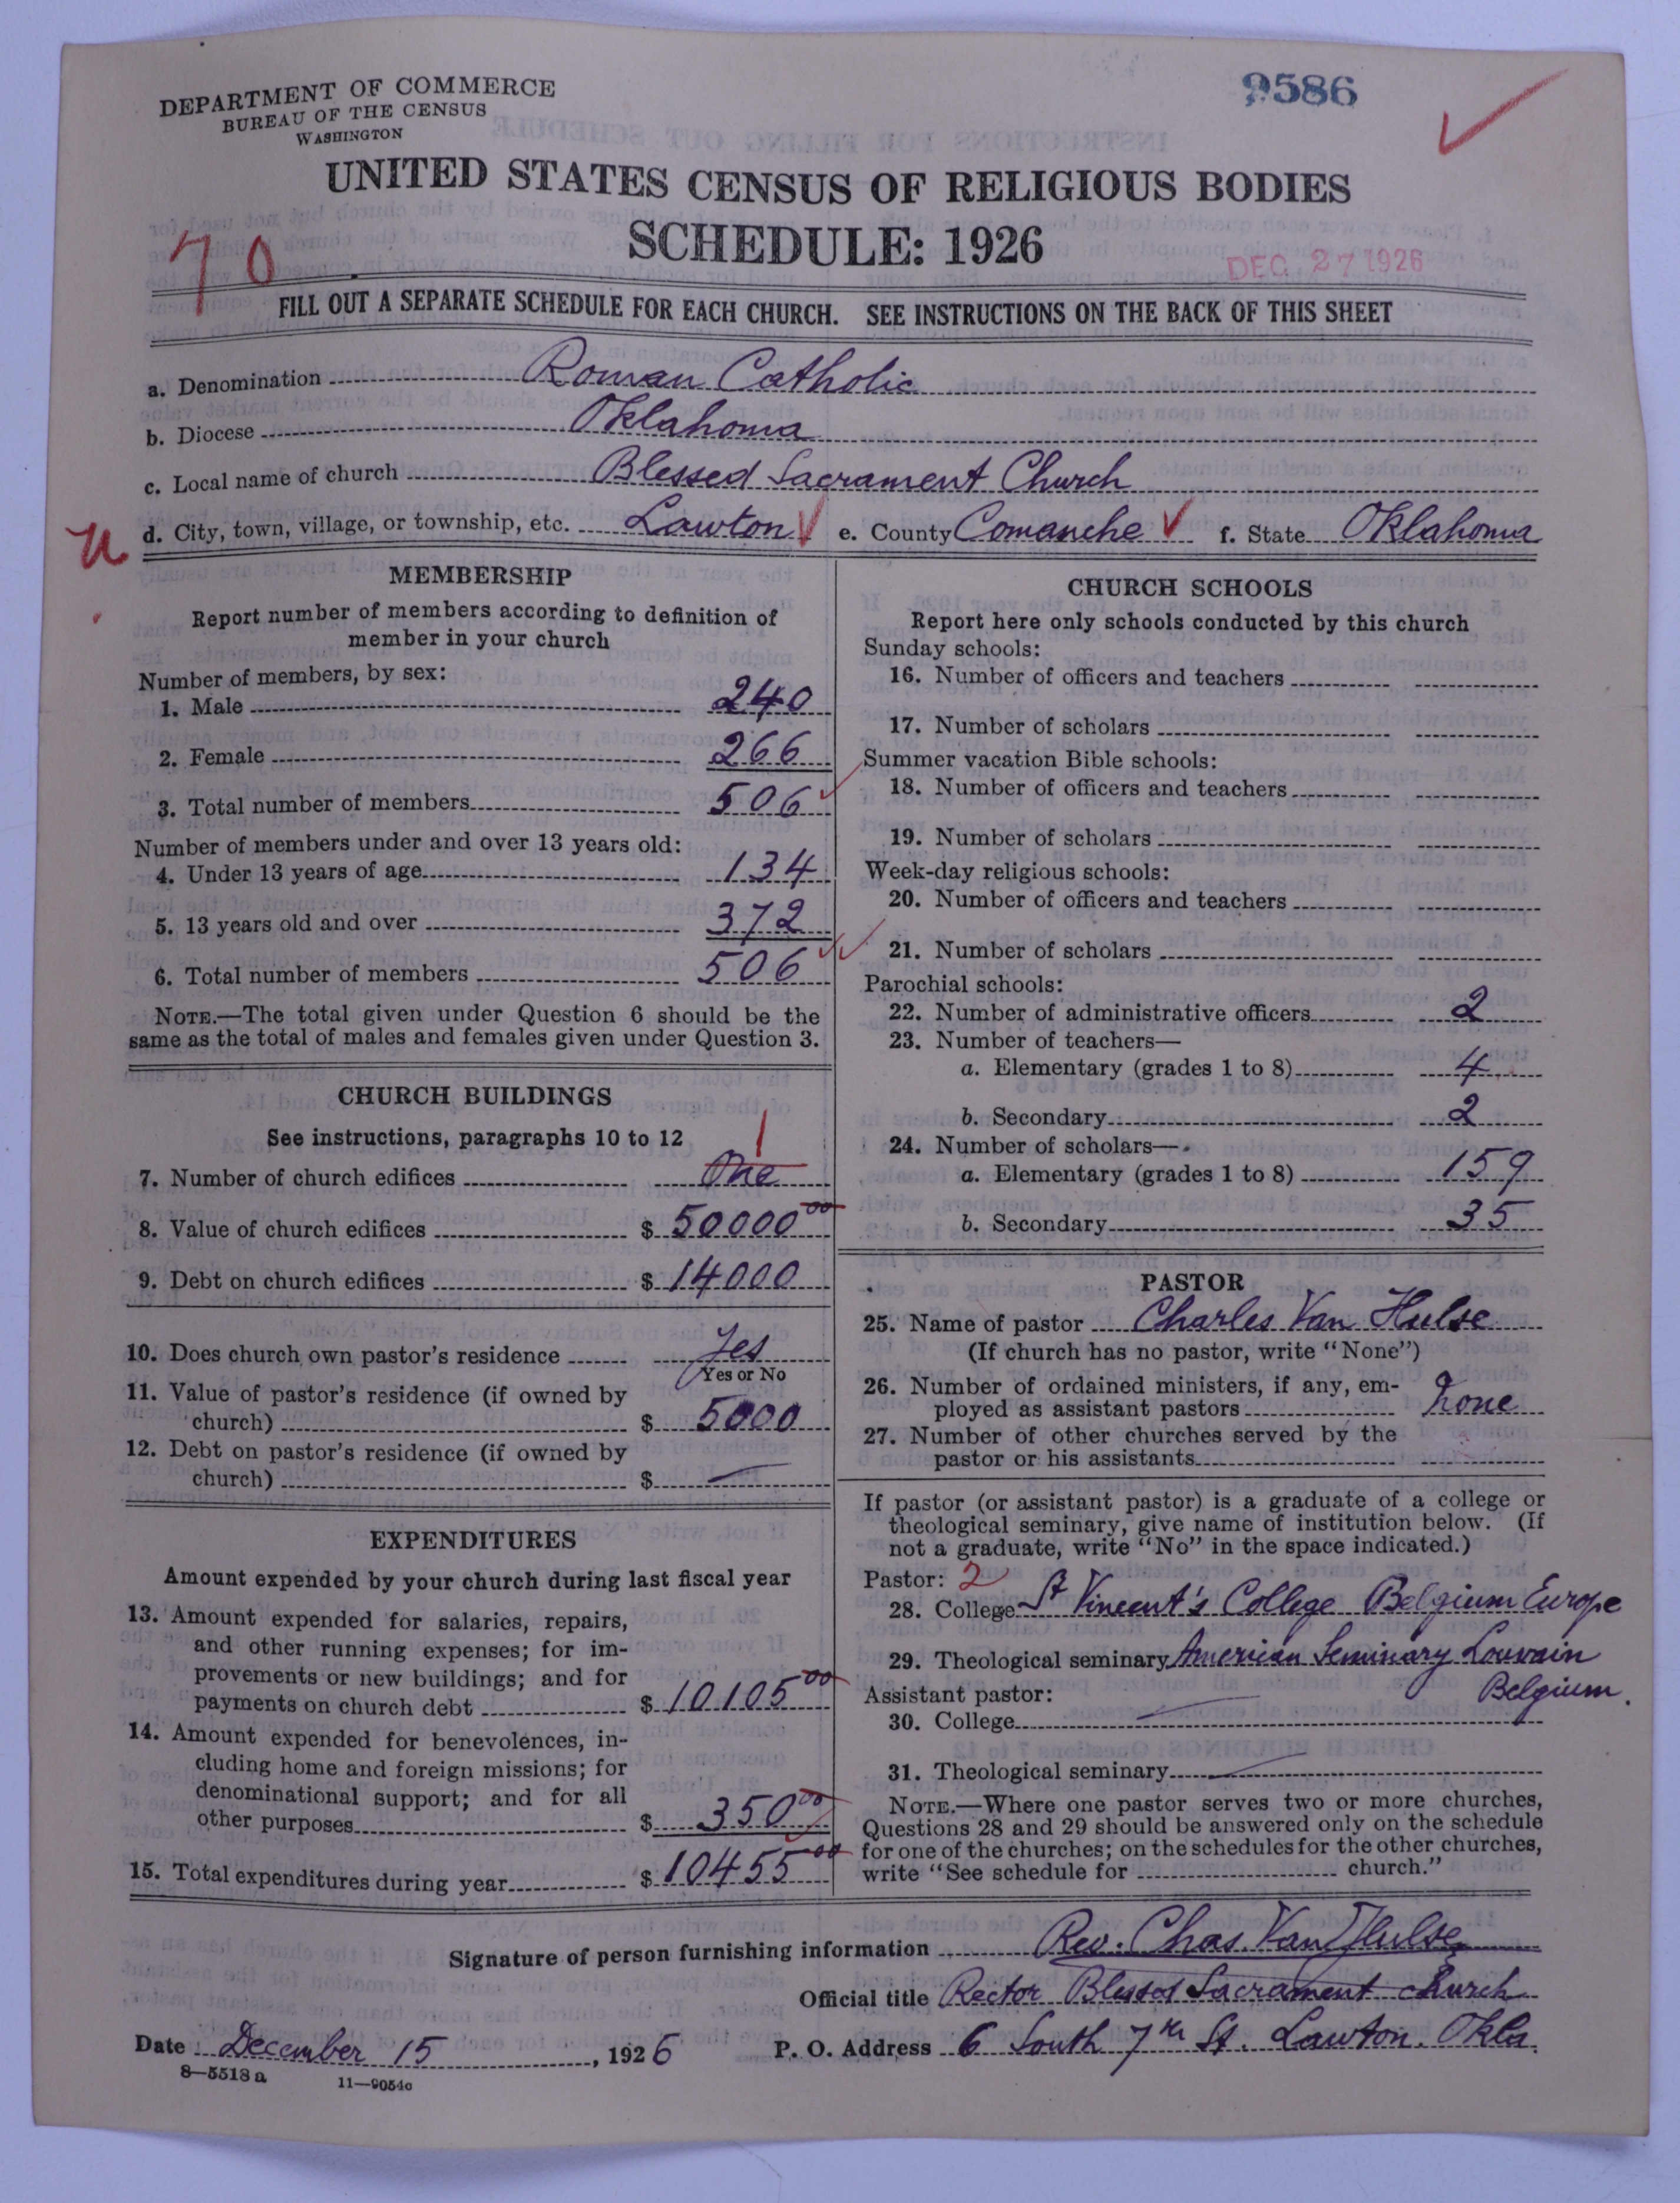 DEPARTMENT OF COMMERCE
BUREAU OF THE CENSUS
WASHINGTON
9586
UNITED STATES CENSUS OF RELIGIOUS BODIES
SCHEDULE: 1926
70
DEC 27 1926
FILL OUT A SEPARATE SCHEDULE FOR EACH CHURCH. SEE INSTRUCTIONS ON THE BACK OF THIS SHEET
a. Denomination Roman Catholic
b. Diocese Oklahoma
c. Local name of church Blessed Sacrament Church
d. City, town, village, or township, etc. Lawton e. County Comanche f. State Oklahoma
MEMBERSHIP
Report number of members according to definition of
member in your church
Number of members, by sex:
1. Male 240
2. Female 266
3. Total number of members 506
Number of members under and over 13 years old:
4. Under 13 years of age 134
5. 13 years old and over 372
6. Total number of members 506
NOTE.—The total given under Question 6 should be the
same as the total of males and females given under Question 3.
CHURCH BUILDINGS
See instructions, paragraphs 10 to 12
1
7. Number of church edifices One
8. Value of church edifices $ 50000 00
9. Debt on church edifices $ 14000
10. Does church own pastor's residence Yes
Yes or No
11. Value of pastor's residence (if owned by
church) $ 5000
12. Debt on pastor's residence (if owned by
church) $ —
EXPENDITURES
Amount expended by your church during last fiscal year
13. Amount expended for salaries, repairs,
and other running expenses; for im-
provements or new buildings; and for
payments on church debt $ 10105 00
14. Amount expended for benevolences, in-
cluding home and foreign missions; for
denominational support; and for all
other purposes $ 350 00
15. Total expenditures during year $ 10455 00
CHURCH SCHOOLS
Report here only schools conducted by this church
Sunday schools:
16. Number of officers and teachers
17. Number of scholars
Summer vacation Bible schools:
18. Number of officers and teachers
19. Number of scholars
Week-day religious schools:
20. Number of officers and teachers
21. Number of scholars
Parochial schools:
22. Number of administrative officers 2
23. Number of teachers—
a. Elementary (grades 1 to 8) 4
b. Secondary 2
24. Number of scholars—
a. Elementary (grades 1 to 8) 159
b. Secondary 35
PASTOR
25. Name of pastor Charles Van Hulse
(If church has no pastor, write "None")
26. Number of ordained ministers, if any, em-
ployed as assistant pastors none
27. Number of other churches served by the
pastor or his assistants
If pastor (or assistant pastor) is a graduate of a college or
theological seminary, give name of institution below. (If
not a graduate, write "No" in the space indicated.)
Pastor: 2
28. College St Vincent's College Belgium Europe
29. Theological seminary American Seminary Louvain
Belgium.
Assistant pastor:
30. College —
31. Theological seminary —
NOTE.—Where one pastor serves two or more churches,
Questions 28 and 29 should be answered only on the schedule
for one of the churches; on the schedules for the other churches,
write "See schedule for church."
Signature of person furnishing information Rev. Chas. Van Hulse
Official title Rector Blessed Sacrament church
Date December 15, 1926 P. O. Address 6 South 7th St. Lawton. Okla.
8—5518a 11—9054c